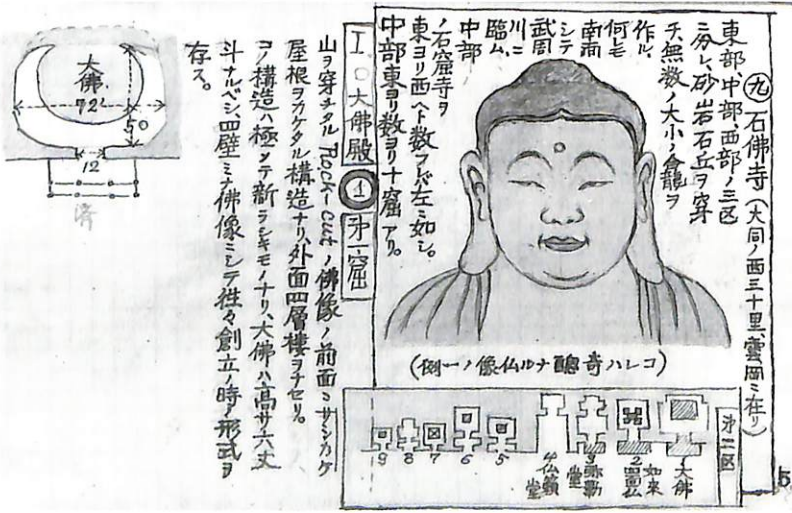 九 石佛寺(大同ノ西三十里雲岡ニ在リ)
東部、中部西部ノ三区
ニ分レ、砂岩石丘ヲ穿
チ、無数ノ大小ノ龕ヲ
作ル、
何レモ
南面
シテ
武周
川ニ
臨ム、
中部
ノ石窟寺ヲ
東ヨリ西ヘト数フレバ左ノ如シ。
中部東ヨリ数ヨリ十窟アリ。
(コレハ奇醜ナル仏像ノ一例)
第二区
1 大佛
如来
2
3 弥勒
堂
4 仏籟
堂
5
6
7
8
9
I.○大佛殿 1 第一窟
山ヲ穿チタルRock-cutノ佛像ノ前面ニサシカケ
屋根ヲカケタル構造ナリ、外面四層楼ヲナセリ。
コノ構造ハ極メテ新ラシキモノナリ、大佛ハ高サ六丈
斗ナルベシ、四壁ミナ佛像ニシテ往々創立ノ時ノ形式ヲ
存ス。
大佛
72'
50
12
済
5